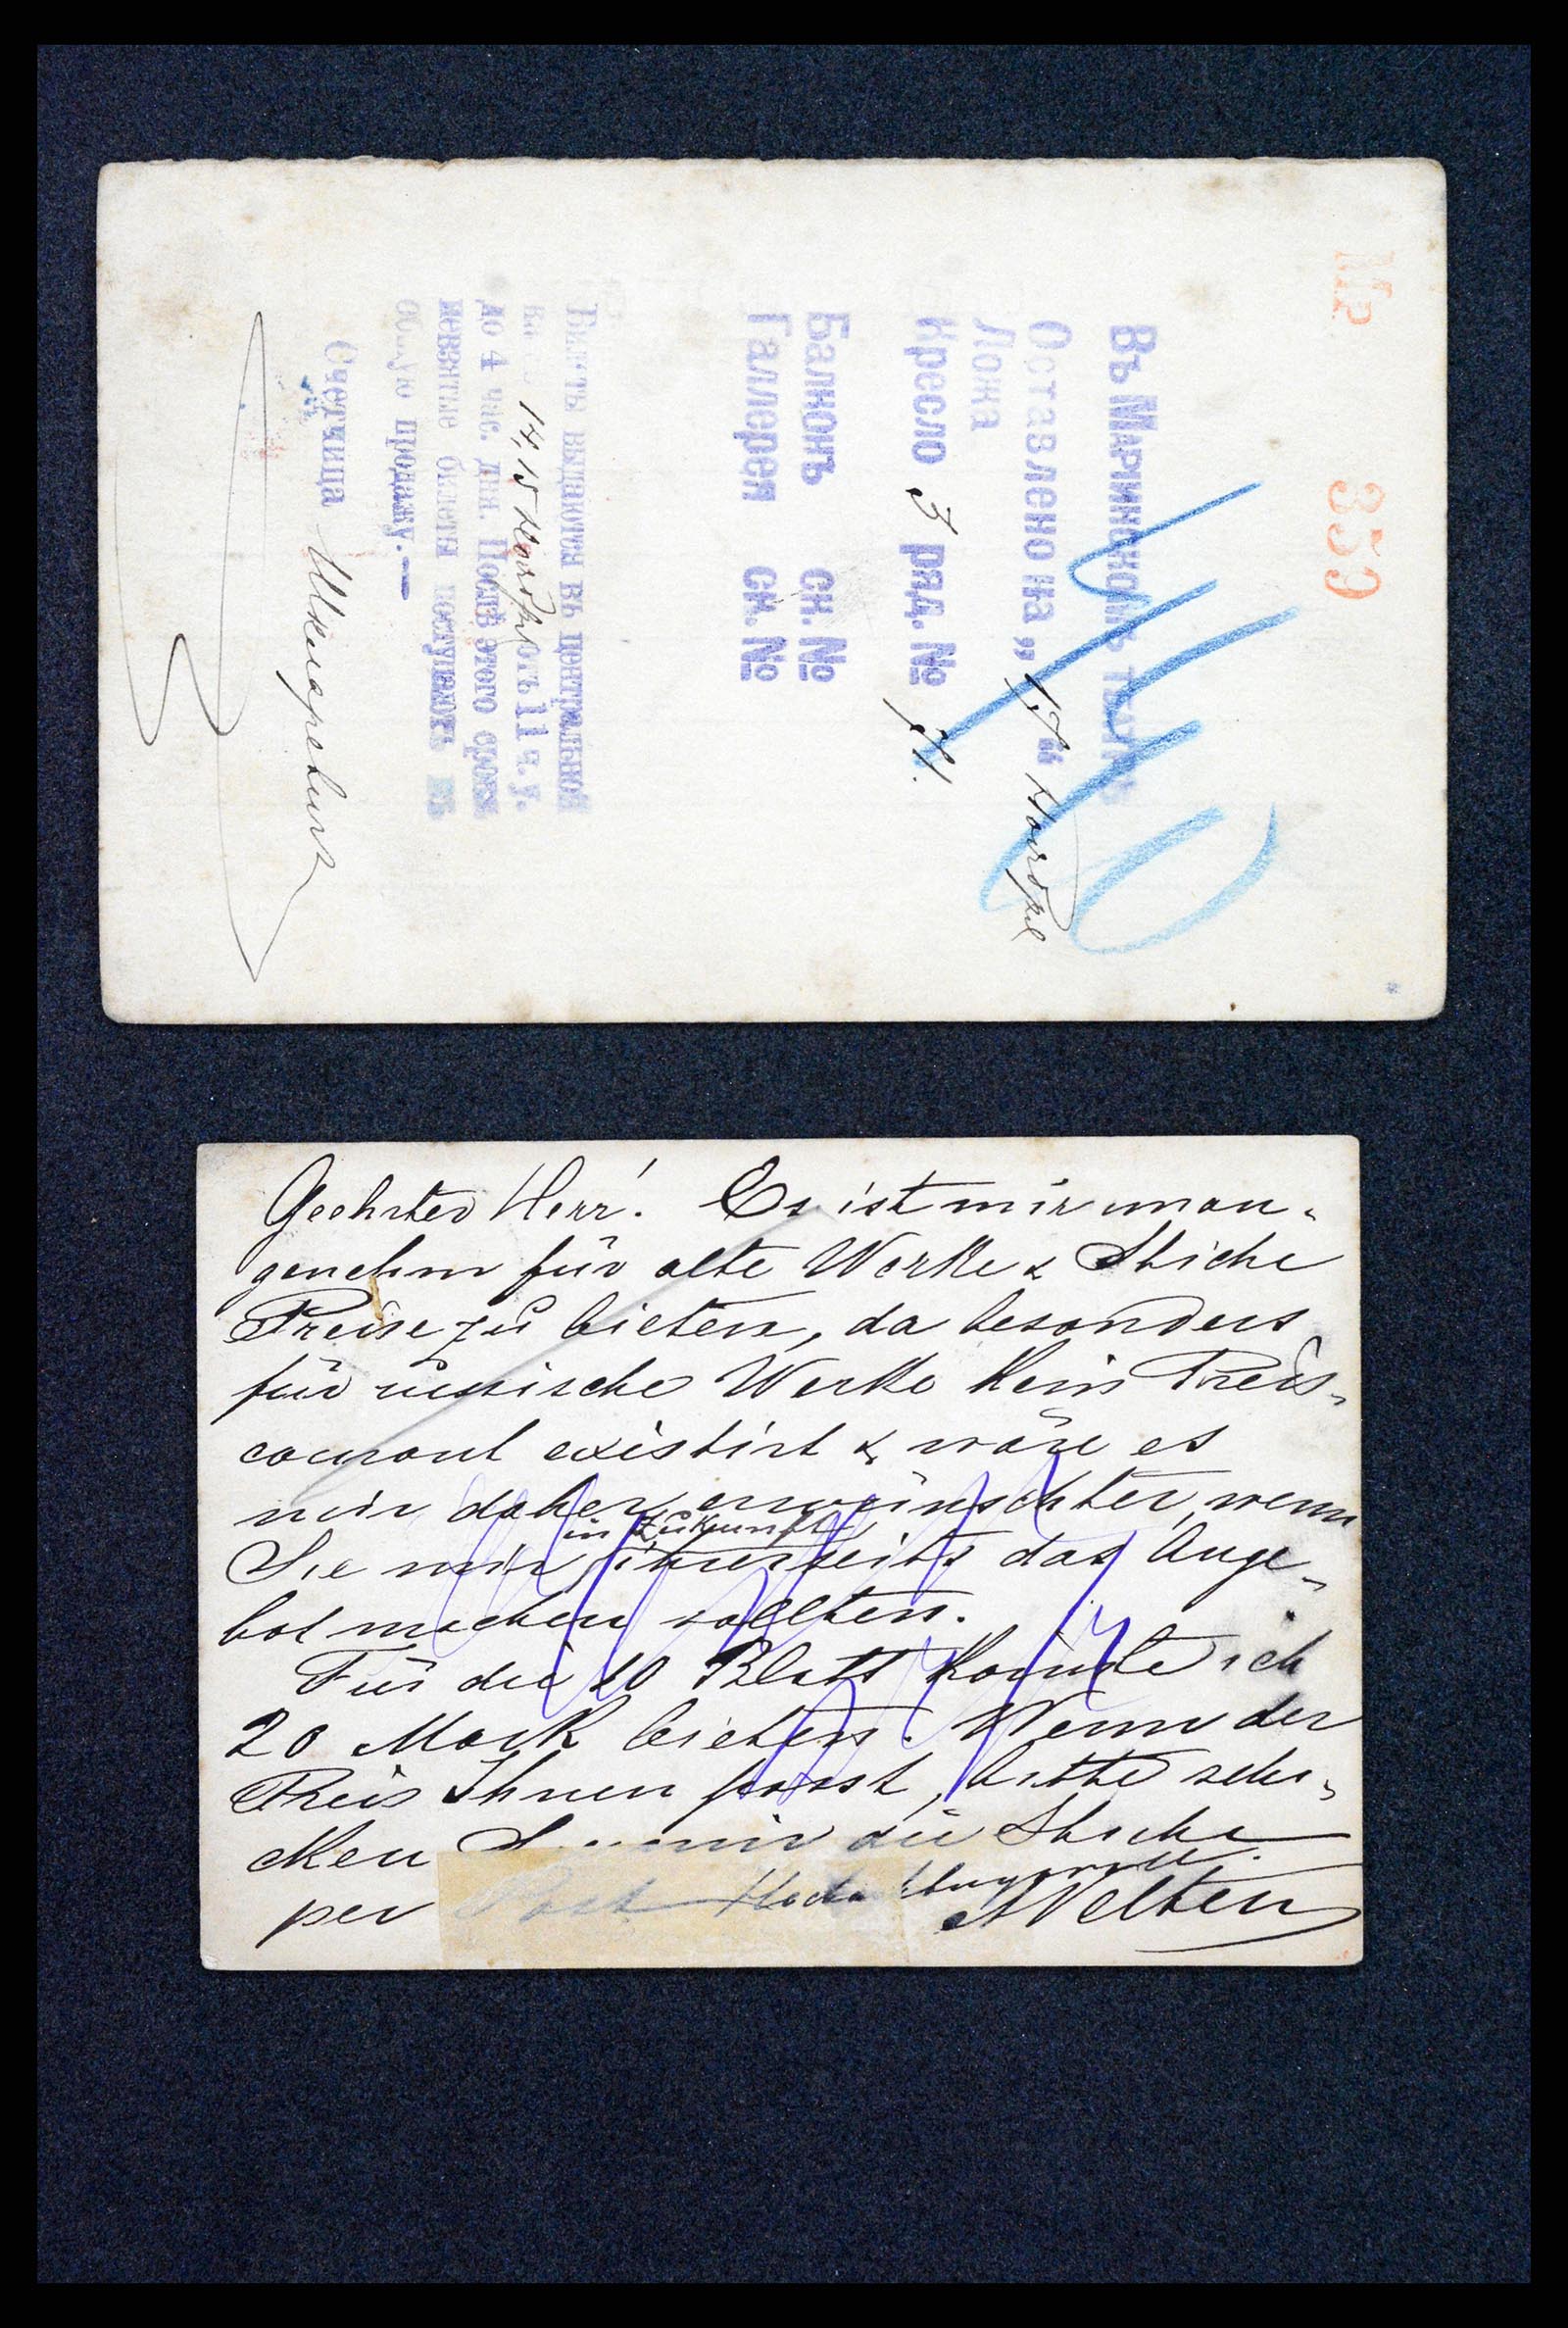 № 359
Въ Маріинскомъ театрѣ
Оставлено на „17“ Ноября
Ложа
Кресло 3 ряд. №
Балконъ ск. №
Галлерея ск. №
Билеты выдаются въ центральной
14, 15 Ноября отъ 11 ч. у.
до 4 час. дня. Послѣ этого срока
невзятые билеты поступаютъ въ
общую продажу.—
Счетчица
Geehrter Herr! Es ist mir unan-
genehm für alte Werke & Stiche
Preise zu bieten, da besonders
für russische Werke kein Preis-
courant existirt & wäre es
mir daher erwünschter, wenn
in Zukunft
Sie mir ihrerseits das Ange-
bot machen sollten.
Für die 10 Blatt könnte ich
20 Mark bieten. Wenn der
Preis Ihnen passt, bitte schi-
cken S mir die Stiche
per Post Hochachtungsvoll
A Velten